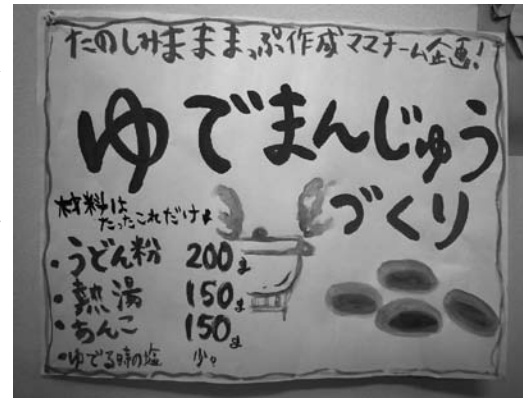 たのしみまままっぷ作成ママチーム企画!
ゆでまんじゅう
づくり
材料は
たったこれだけ♪
・うどん粉 200g
・熱湯 150g
・あんこ 150g
・ゆでる時の塩 少。